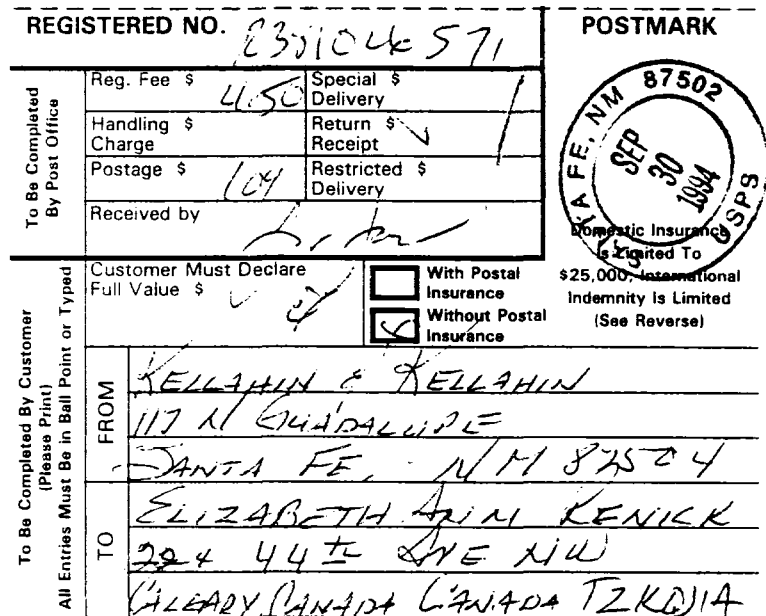 REGISTERED NO.
POSTMARK
To Be Completed By Post Office
Reg. Fee $ 4.50
Special Delivery $
Handling Charge $
Return Receipt $
Postage $
Restricted Delivery $
Received by
SANTA FE, NM 87502
SEP 30 1994
USPS
Domestic Insurance
Is Limited To
$25,000; International
Indemnity Is Limited
(See Reverse)
To Be Completed By Customer
(Please Print)
All Entries Must Be in Ball Point or Typed
Customer Must Declare
Full Value $
With Postal
Insurance
Without Postal
Insurance
FROM
KELLAHIN & KELLAHIN
117 N GUADALUPE
SANTA FE, NM 87504
TO
ELIZABETH ANN KENICK
44TH AVE NW
CALGARY CANADA CANADA